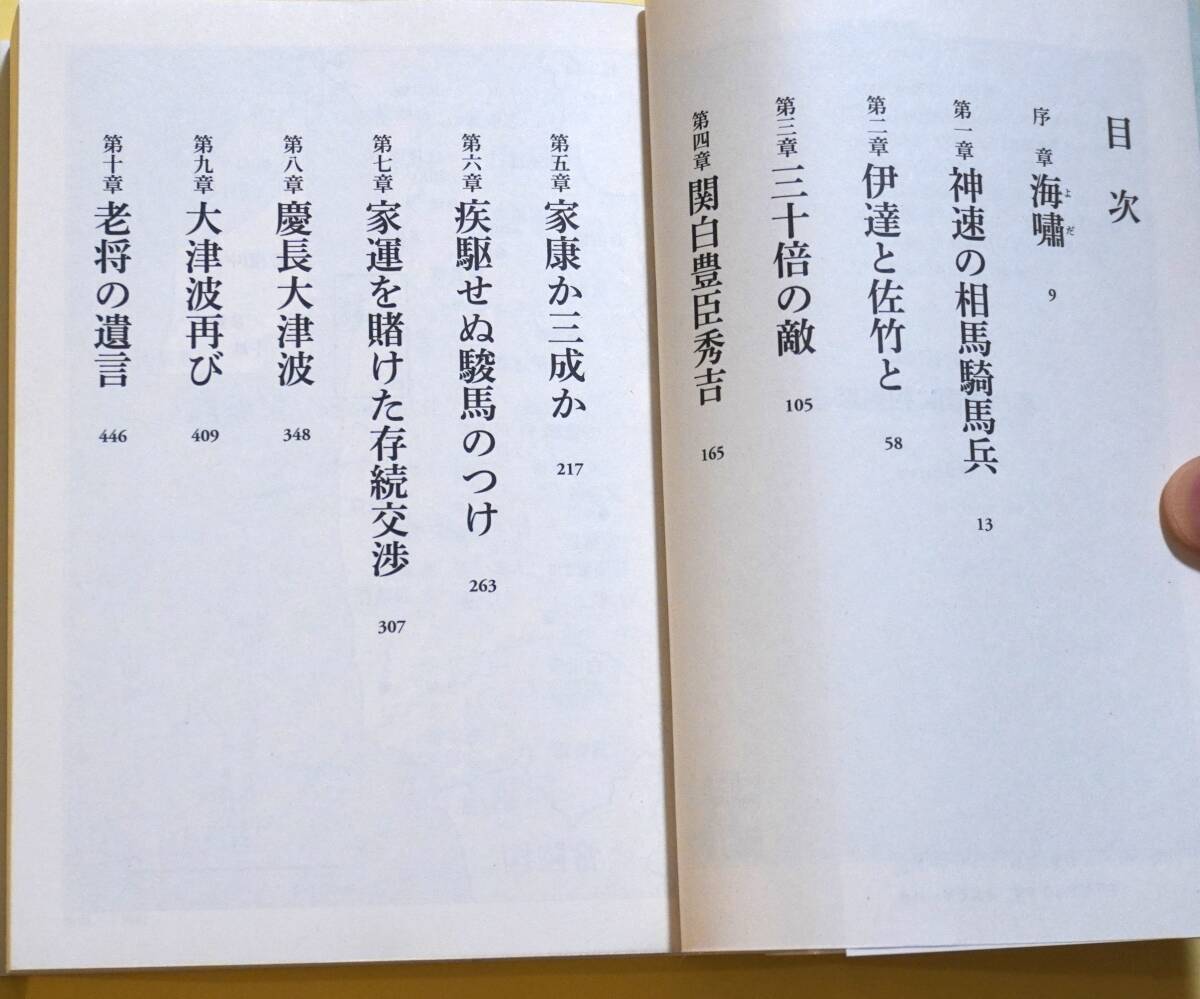 目次
序章 海嘯 9
よだ
第一章 神速の相馬騎馬兵 13
第二章 伊達と佐竹と 58
第三章 三十倍の敵 105
第四章 関白豊臣秀吉 165
第五章 家康か三成か 217
第六章 疾駆せぬ駿馬のつけ 263
第七章 家運を賭けた存続交渉 307
第八章 慶長大津波 348
第九章 大津波再び 409
第十章 老将の遺言 446